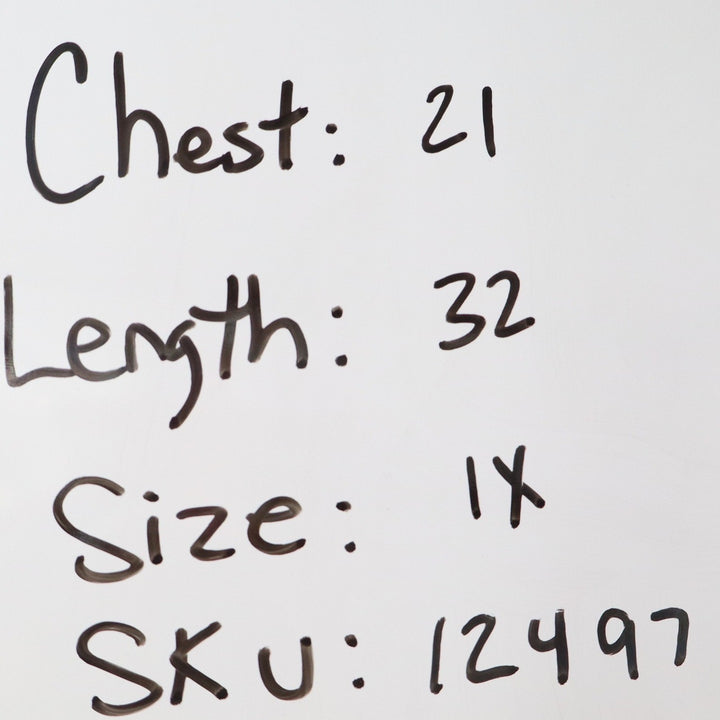 Chest: 21
Length: 32
Size: 1X
SKU: 12497